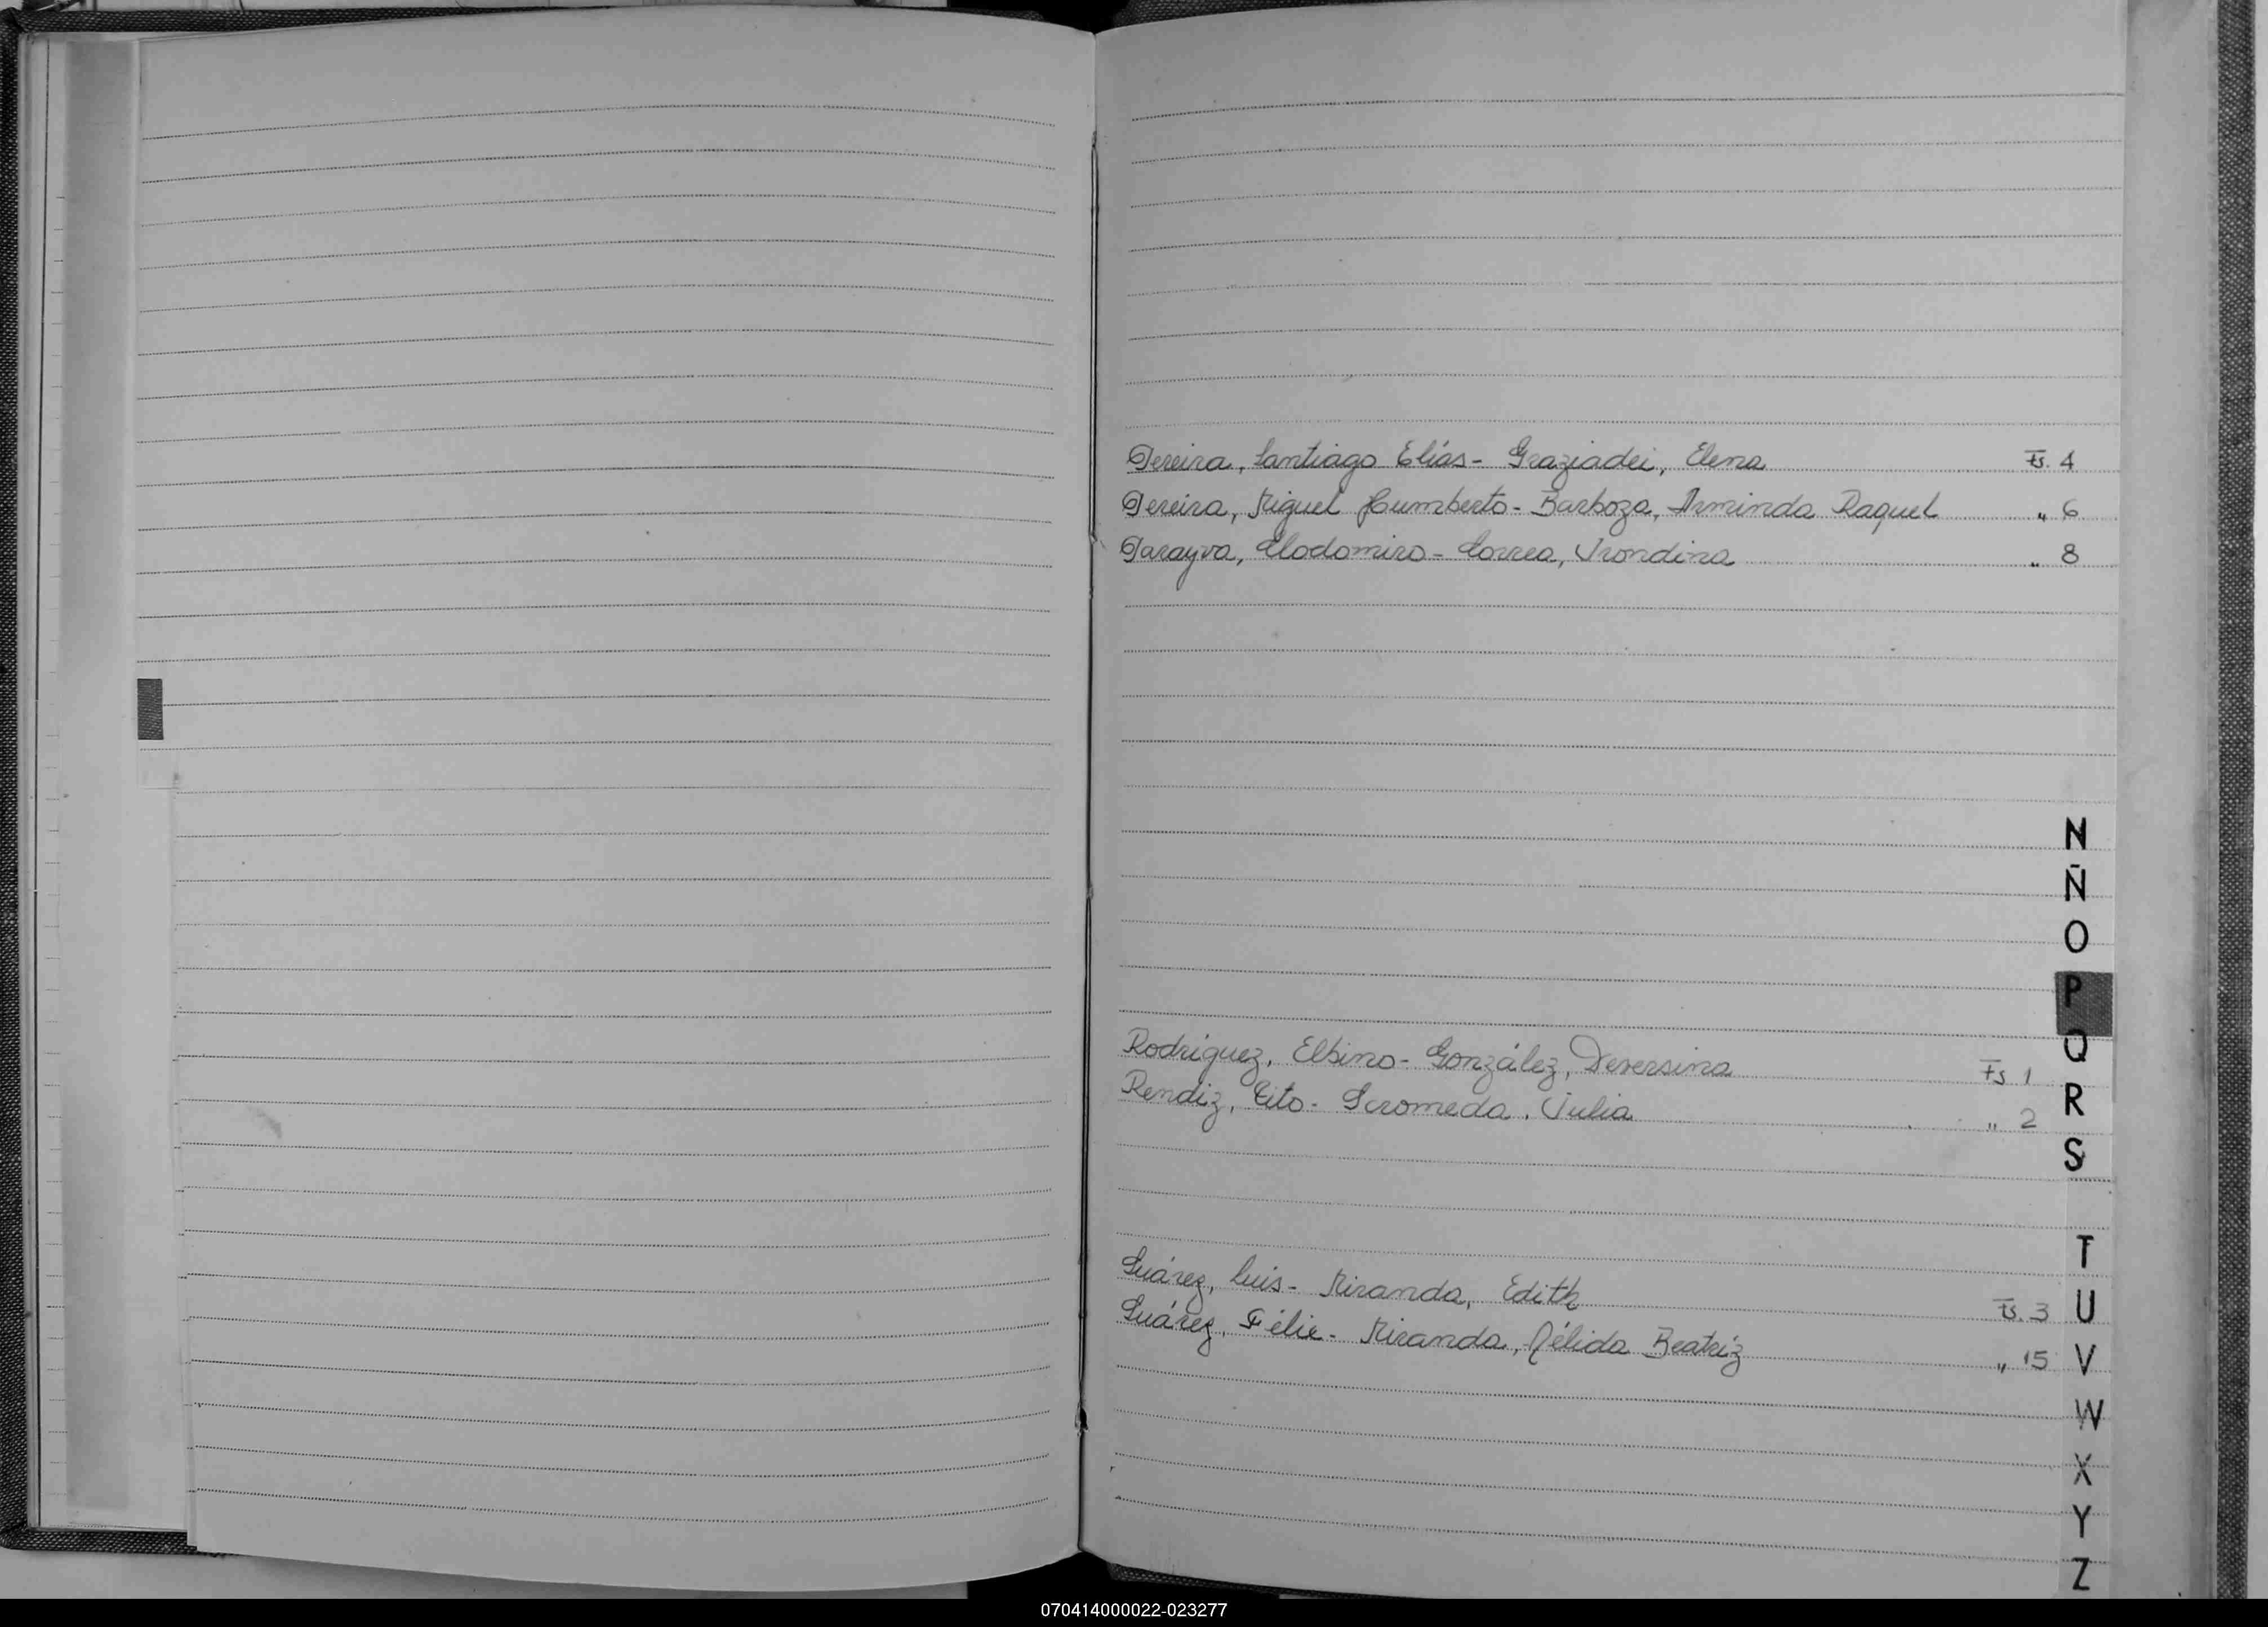 Pereira, Santiago Elías - Graziadei, Elena Fs. 4
Pereira, Miguel Humberto - Barboza, Arminda Raquel " 6
Parayva, Clodomiro - Correa, Irondina " 8
Rodríguez, Elbino - González, Deversina Fs 1
Rendiz, Tito - Scromeda, Julia " 2
Suárez, Luis - Miranda, Edith Fs. 3
Suárez, Félix - Miranda, Nélida Beatriz " 15
N
Ñ
O
P
Q
R
S
T
U
V
W
X
Y
Z
070414000022-023277